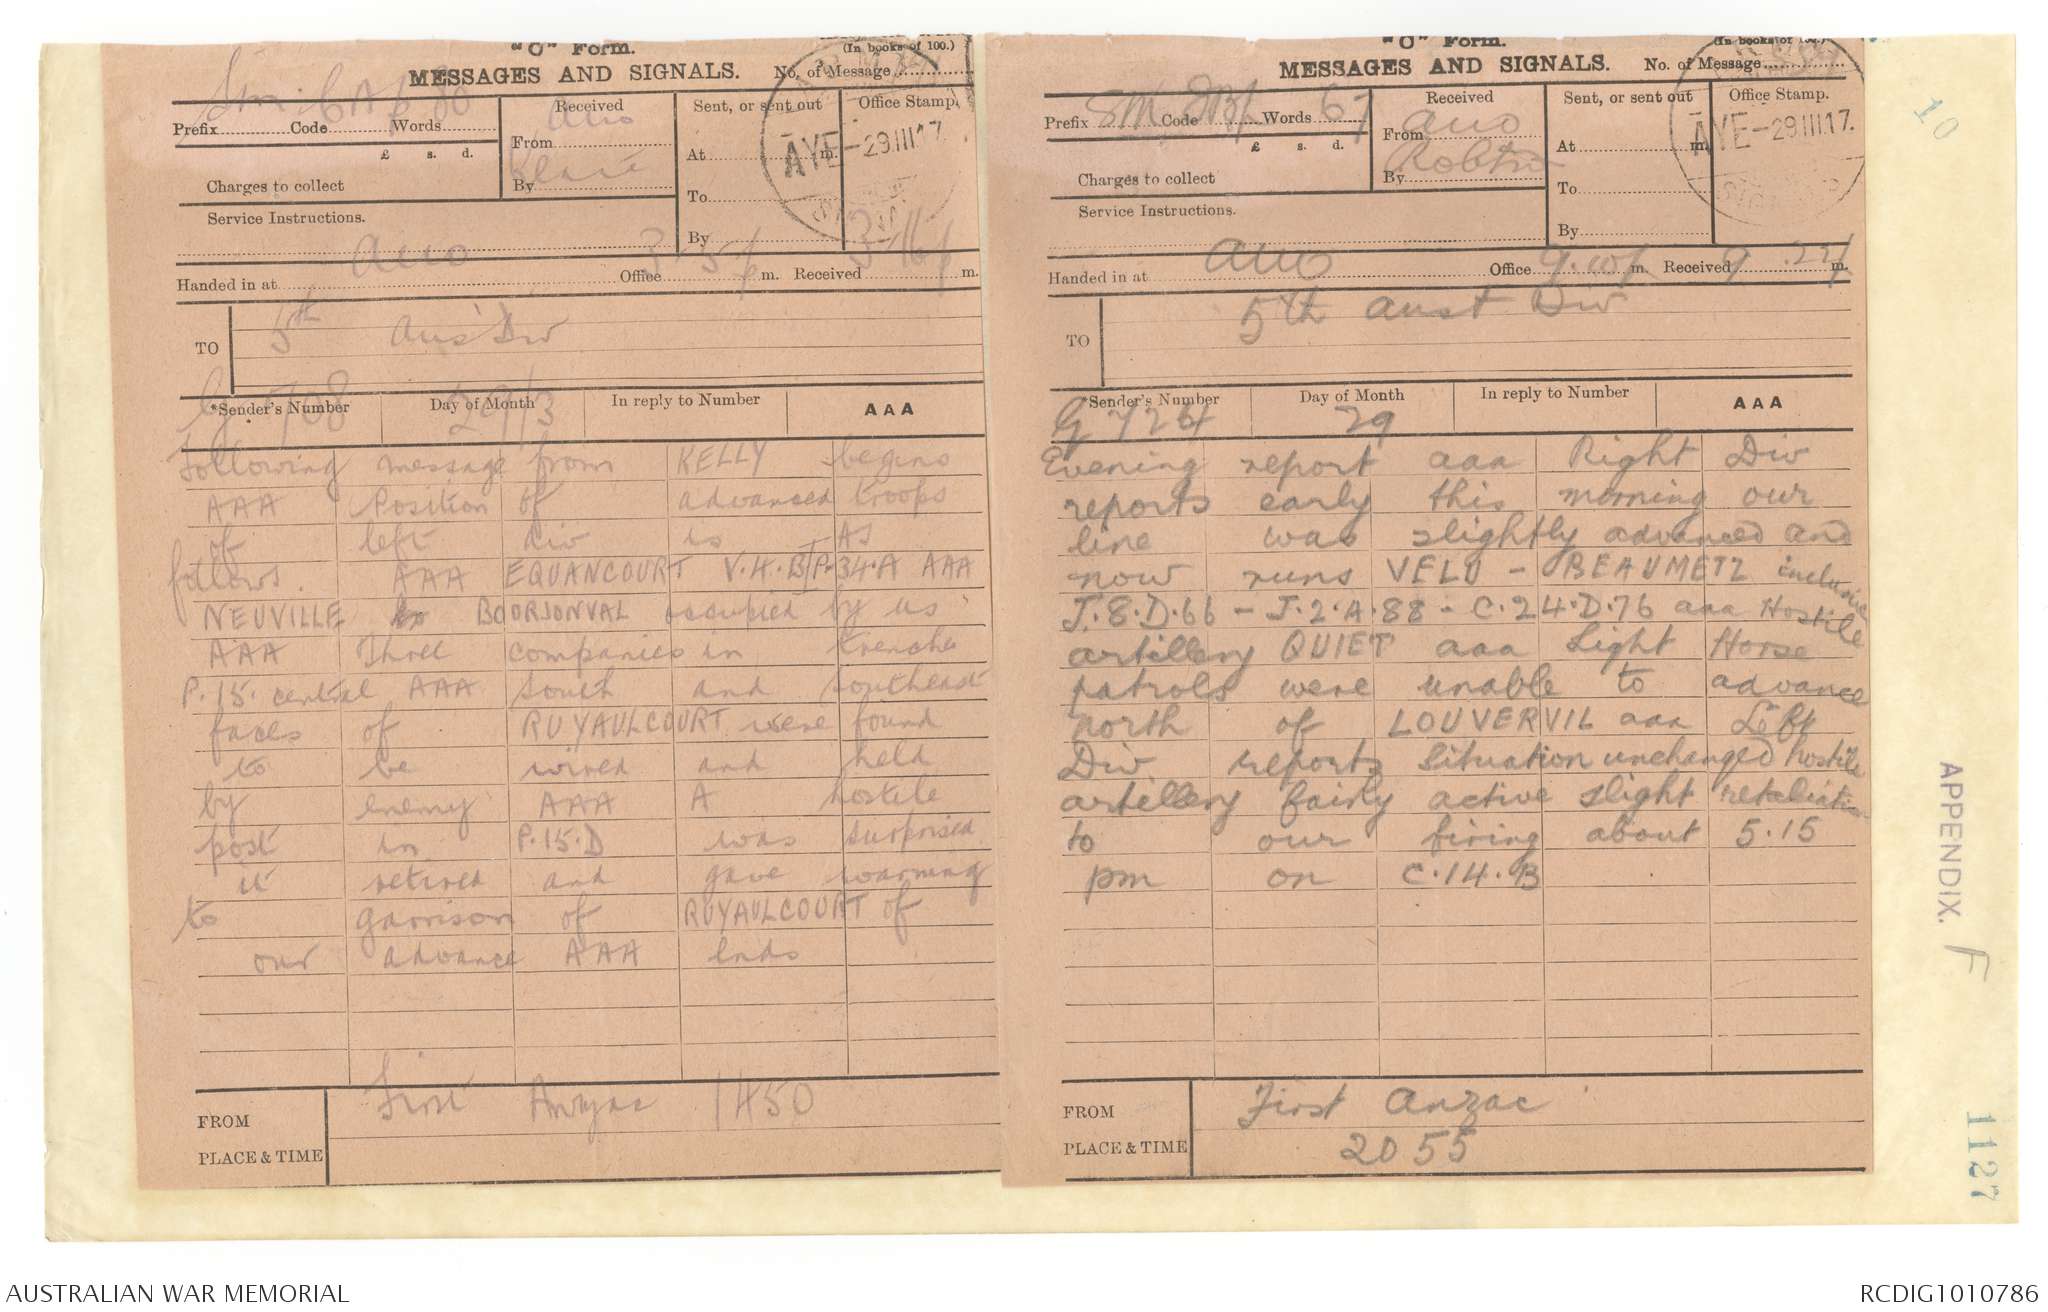 "C" Form.
(In books of 100.)
MESSAGES AND SIGNALS.
No. of Message
Prefix Sm Code CAp Words 80
Received
From AUO
By
Sent, or sent out
At m.
To
By
Office Stamp.
AYE-29III17.
£ s. d.
Charges to collect
Service Instructions.
Handed in at AUO Office 3.5 p m. Received 3.16 p m.
TO 5th Aus Div
*Sender's Number
Day of Month
In reply to Number
AAA
G 708
29/3
Following message from KELLY begins
AAA Position of advanced troops
of left div is AS
follows. AAA EQUANCOURT V.4.B P.34.A AAA
NEUVILLE BOORJONVAL occupied by us
AAA Three companies in trenches
P.15. central AAA South and southeast
faces of RUYAULCOURT were found
to be wired and held
by enemy AAA A hostile
post in P.15.D was surprised
it retired and gave warning
to garrison of RUYAULCOURT of
our advance AAA ends
FROM
PLACE & TIME
First Anzac 1450
"C" Form.
(In books of 100.)
MESSAGES AND SIGNALS.
No. of Message
Prefix SM Code Words 67
Received
From AUO
By
Sent, or sent out
At m.
To
By
Office Stamp.
AYE-29III17.
£ s. d.
Charges to collect
Service Instructions.
Handed in at AUO Office m. Received m.
TO 5th Aust Div
*Sender's Number
Day of Month
In reply to Number
AAA
G 724
29
Evening report aaa Right Div
reports early this morning our
line was slightly advanced and
now runs VELU - BEAUMETZ inclusive
J.8.D.66 - J.2.A.88 - C.24.D.76 aaa Hostile
artillery QUIET aaa Light Horse
patrols were unable to advance
north of LOUVERVIL aaa Left
Div reports situation unchanged hostile
artillery fairly active slight retaliation
to our firing about 5.15
pm on C.14.B
FROM
PLACE & TIME
First Anzac
2055
10
APPENDIX. F
1127
AUSTRALIAN WAR MEMORIAL
RCDIG1010786